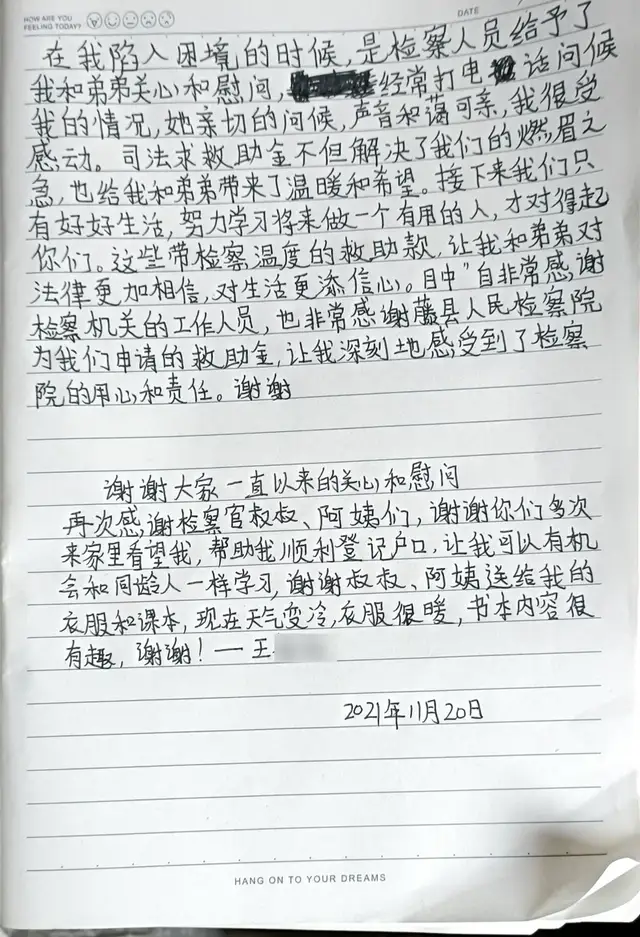 HOW ARE YOU
FEELING TODAY?
DATE
在我陷入困境的时候,是检察人员给予了
我和弟弟关心和慰问,经常打电话问候
我的情况,她亲切的问候,声音和蔼可亲,我很受
感动。司法求救助金不但解决了我们的燃眉之
急,也给我和弟弟带来了温暖和希望。接下来我们只
有好好生活,努力学习将来做一个有用的人,才对得起
你们。这些带检察温度的救助款,让我和弟弟对
法律更加相信,对生活更添信心。目中"自非常感谢
检察机关的工作人员,也非常感谢藤县人民检察院
为我们申请的救助金,让我深刻地感受到了检察
院的用心和责任。谢谢
谢谢大家一直以来的关心和慰问
再次感谢检察官叔叔、阿姨们,谢谢你们多次
来家里看望我,帮助我顺利登记户口,让我可以有机
会和同龄人一样学习,谢谢叔叔、阿姨送给我的
衣服和课本,现在天气变冷,衣服很暖,书本内容很
有趣,谢谢!一王
2021年11月20日
HANG ON TO YOUR DREAMS